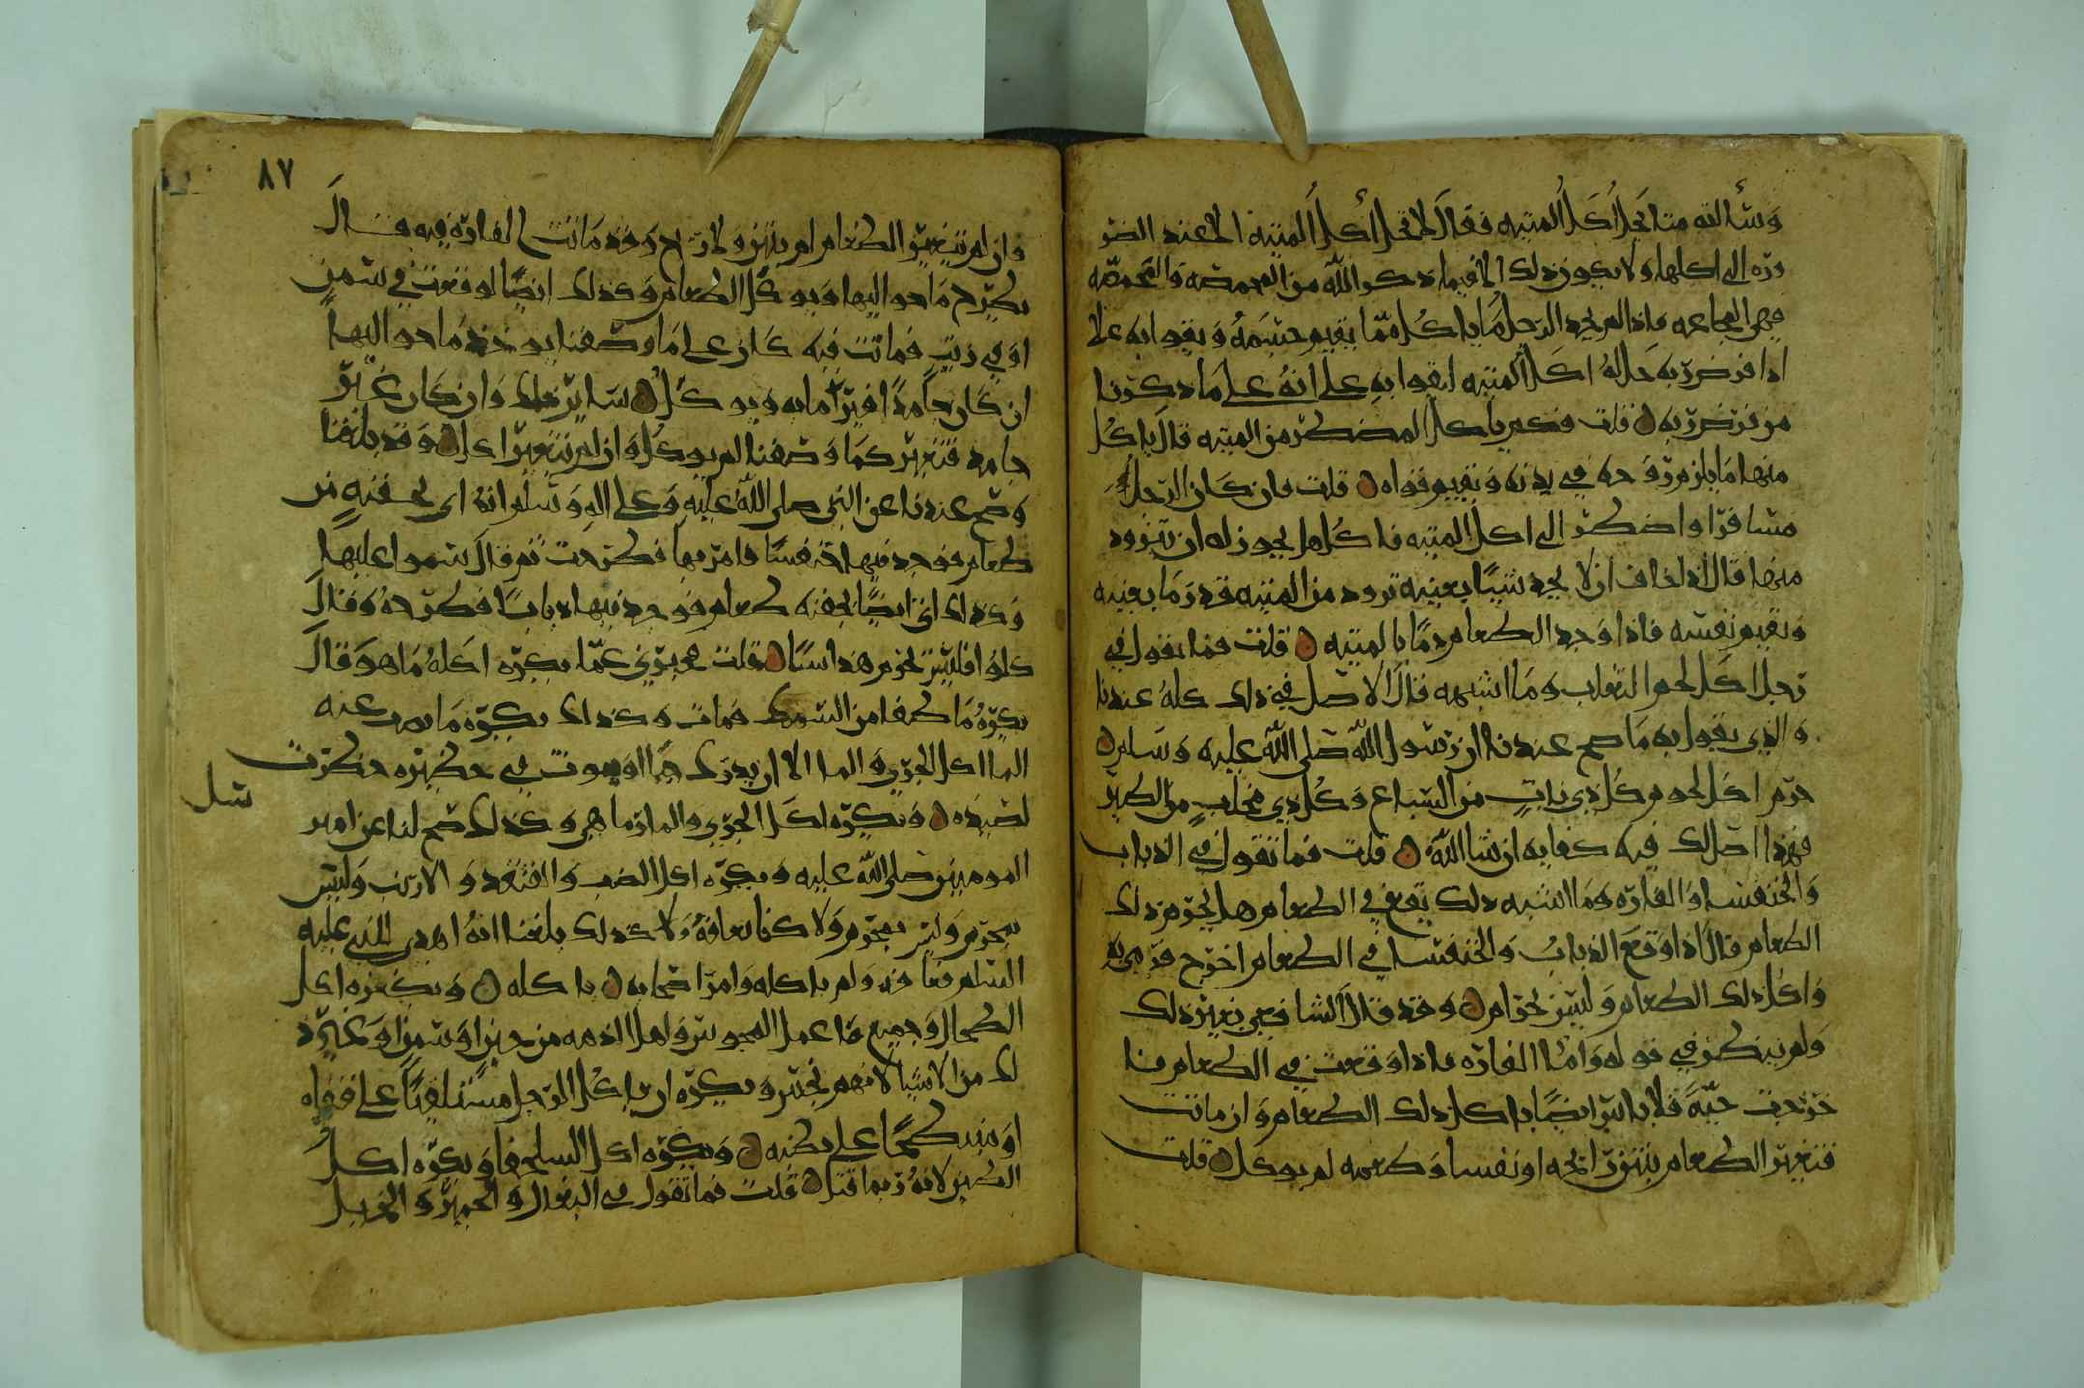 وسألته متا يحل أكل الميته فقال لا تحل أكل الميتة الا عند الضرو
ورة الى اكلها ولا يجوز ذلك الا فيما ذكر الله من المخمصه والمخمصه
فهي المجاعه فاذا لم يجد الرجل ما ياكل مما يقيم جسمه ويقوا به على
اداء فرض ربه حل له اكل الميته ليقوا به على انه على ما ذكرنا
من فرض ربه قلت فكم ياكل المضطر من الميته قال ياكل
منها ما يلزم روحه في بدنه ويقيم قواه قلت فان كان الرجل
مسافرا واضطر الى اكل الميته فاكل هل يجوز له ان يتزود
منها قال اذا خاف ان لا يجد شيئا يغنيه تزود من الميته قدر ما يغنيه
ويقيم نفسه فاذا وجد الطعام رما بالميته قلت فما تقول في
رجل اكل لحم الثعلب وما اشبهه قال الاصل في ذلك كله عندنا
والذي يقول به ما صح عندنا ان رسول الله صلى الله عليه وسلم
حرم اكل لحوم كل ذي ناب من السباع وكل ذي مخلب من الطير
فهذا اصل لك فيه كفايه ان شا الله قلت فما تقول في الذباب
والخنفسا والفاره وما اشبه ذلك يقع في الطعام هل يحرم ذلك
الطعام قال اذا وقع الذباب والخنفسا في الطعام اخرج فرمي به
واكل ذلك الطعام وليس بحرام وقد قال الشافعي بغير ذلك
ولم ينظر في قوله واما الفاره فاذا وقعت في الطعام فا
خرجت حية فلا باس ايضا باكل ذلك الطعام وان ماتت
فتغير الطعام بنتن رائحه او نفسا وطعمه لم يوكل قلت
٨٧
وان لم يتغير الطعام لم ينتن ولا رائح وقد ماتت الفارة فيه قال
يطرح ما حواليها ويوكل الطعام وكذلك ايضا لو وقعت في سمن
او في زيت فماتت فيه كان على ما وصفنا يوخذ ما حواليها
ان كان جامدا فيرما به ويوكل سائر ذلك وان كان غير
جامد فتغير كما وصفنا لم يوكل وان لم يتغير اكل وقد بلغنا
وصح عندنا عن النبي صلى الله عليه وعلى اله وسلم انه اتي بجفنه من
طعام فوجد فيها خنفسا فامر بها فطرحت ثم قال سموا عليها
وكذلك اتي ايضا بجفنه طعام فوجد فيها ذبابا فطرحه وقال
كلوا فليس يحرم هذا شيا قلت خبرني عما يكره اكله ما هو قال
يكره ما طفا من السمك فمات وكذلك يكره ما نضب عنه
الما اكل الجري والما الا ان يدرك حيا او يموت في حظيره حظرت
لصيده ويكره اكل الجري والمارماهي وكذلك صح لنا عن امير
المومنين صلى الله عليه ويكره اكل الضب والقنفد والارنب وليس
بمحرم وليس بمحرم ولا كنا نعافه ولا كذلك بلغنا انه اهدي للنبي عليه
السلم فعافه ولم ياكله وامر اصحابه باكله ويكره اكل
الطحال وجميع ما عمل المجوس واهل الذمه من جبن او سمن او غير ذ
لك من الاشيا لانهم نجس ويكره ان ياكل الرجل مستلقيا على قفاه
او منبطحا على بطنه ويكره اكل السلحفا ويكره اكل
الطين لانه ربما قتل قلت فما تقول في البغال والحمير والخيل